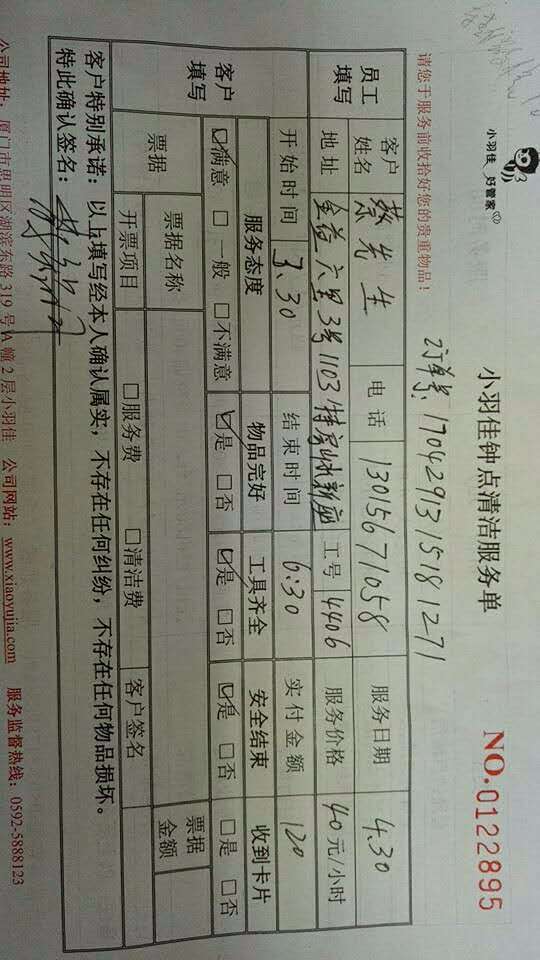 小羽佳 好管家
小羽佳钟点清洁服务单
NO.0122895
请您于服务前收拾好您的贵重物品!
订单号 1704291315181271
员工填写
客户姓名 蔡先生 电话 13015671058 服务日期 4.30
地址 金益六里3号1103 工号 4406 服务价格 40元/小时
开始时间 3.30 结束时间 6:30 实付金额 120
客户填写
服务态度 物品完好 工具齐全 安全结束 收到卡片
☑满意 □一般 □不满意 ☑是 □否 ☑是 □否 ☑是 □否 □是 □否
票据 票据名称 票据金额
开票项目 □服务费 □清洁费 客户签名
客户特别承诺:以上填写经本人确认属实,不存在任何纠纷,不存在任何物品损坏。
特此确认签名:
公司地址:厦门市思明区湖滨东路319号A幢2层小羽佳 公司网站:www.xiaoyujia.com 服务监督热线:0592-5888123